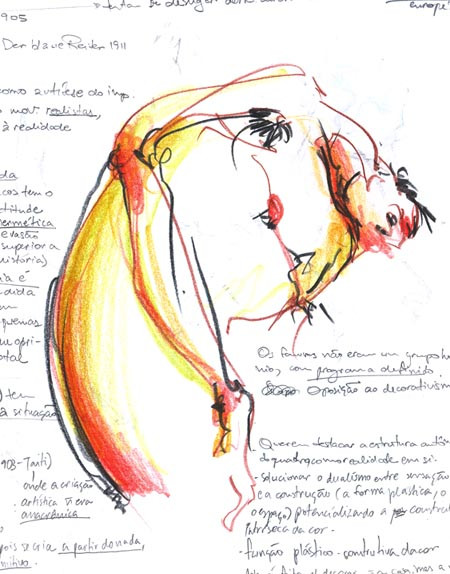 se desligar deste
europe
905
Der blaue Reiter 1911
como antítese do imp.
o mov. realistas,
à realidade
da
cos tem o
atitude
hermética
evasão
superior a
história)
ia é
dida
em
quemas
total
) tem
a situação
908 - Taiti)
onde a criação
artística era
anacrónica
pois se cria a partir do nada,
Os fauves não eram um grupo
nio, com programa definido.
Oposição ao decorativism
Querem destacar a estrutura
do quadro como realidade em si -
- solucionar o dualismo entre sensação
e a construção (a forma plástica, o
espaço) potencializando a
intrínseca da cor.
- função plástico-construtiva da cor